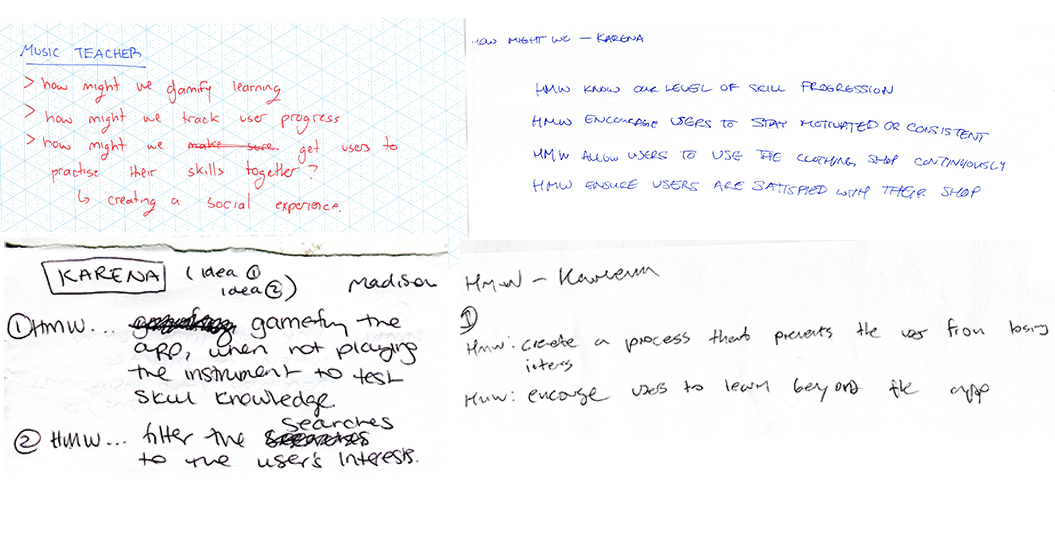 MUSIC TEACHER
> how might we gamify learning
> how might we track user progress
> how might we make sure get users to
practise their skills together?
↳ creating a social experience.
HOW MIGHT WE – KARENA
HMW KNOW OUR LEVEL OF SKILL PROGRESSION
HMW ENCOURAGE USERS TO STAY MOTIVATED OR CONSISTENT
HMW ALLOW USERS TO USE THE CLOTHING SHOP CONTINUOUSLY
HMW ENSURE USERS ARE SATISFIED WITH THEIR SHOP
KARENA (idea ①
idea ②) Madison
① HMW... gamefiy the
app, when not playing
the instrument to test
skill knowledge.
searches
② HMW... filter the
to the user's interests.
HMW – Kareena
①
HMW: create a process that prevents the user from losing
interes
HMW: encourage users to learn beyond the app